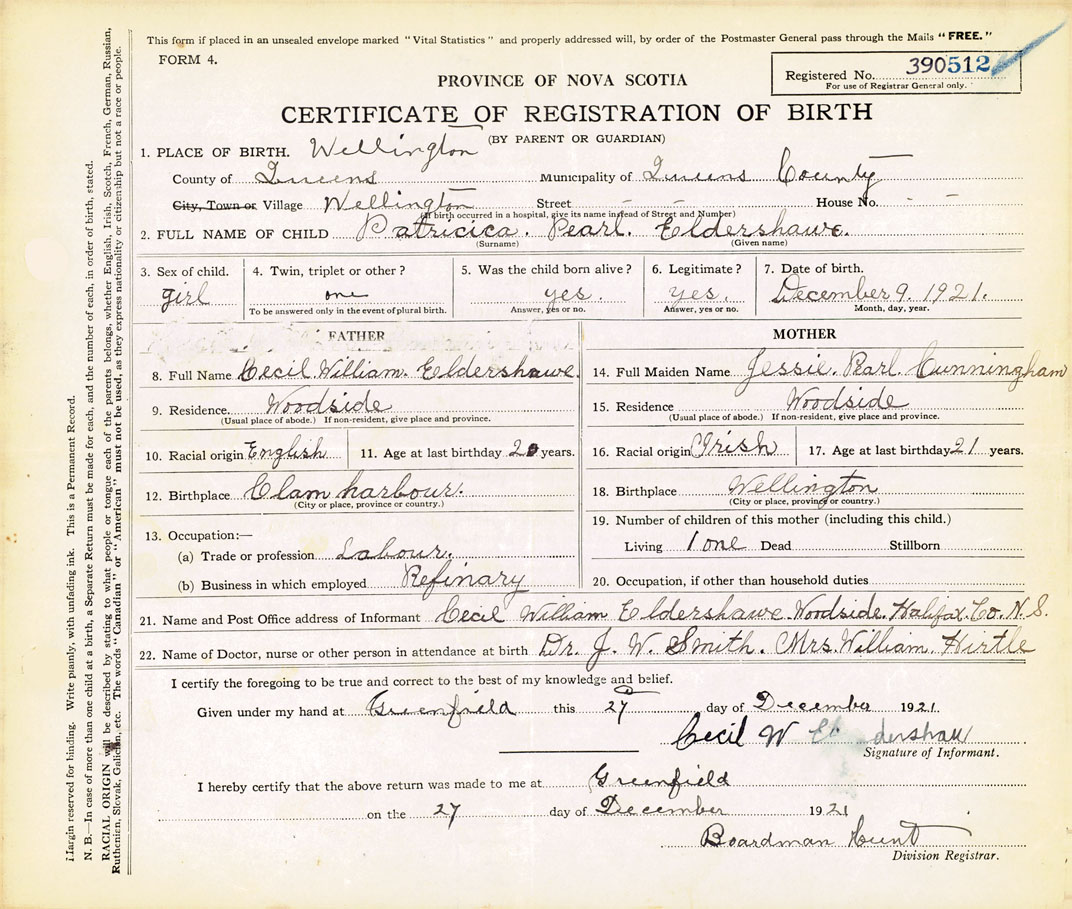 This form if placed in an unsealed envelope marked "Vital Statistics" and properly addressed will, by order of the Postmaster General pass through the Mails "FREE."
FORM 4.
Registered No. 390512
For use of Registrar General only.
PROVINCE OF NOVA SCOTIA
CERTIFICATE OF REGISTRATION OF BIRTH
(BY PARENT OR GUARDIAN)
1. PLACE OF BIRTH. Wellington
County of Queens Municipality of Queens County
City, Town or Village Wellington Street - - House No. - -
(If birth occurred in a hospital, give its name instead of Street and Number)
2. FULL NAME OF CHILD Patricica. Pearl. Eldershawe.
(Surname) (Given name)
3. Sex of child. 4. Twin, triplet or other? 5. Was the child born alive? 6. Legitimate? 7. Date of birth.
girl one yes. yes. December 9. 1921.
To be answered only in the event of plural birth. Answer, yes or no. Answer, yes or no. Month, day, year.
FATHER
8. Full Name Cecil William. Eldershawe.
9. Residence. Woodside
(Usual place of abode.) If non-resident, give place and province.
10. Racial origin English 11. Age at last birthday 20 years.
12. Birthplace Clam harbour.
(City or place, province or country.)
13. Occupation:—
(a) Trade or profession Labour.
(b) Business in which employed Refinary
MOTHER
14. Full Maiden Name Jessie. Pearl Cunningham
15. Residence Woodside
(Usual place of abode.) If non-resident, give place and province.
16. Racial origin Irish 17. Age at last birthday 21 years.
18. Birthplace Wellington
(City or place, province or country.)
19. Number of children of this mother (including this child.)
Living 1 one Dead Stillborn
20. Occupation, if other than household duties
21. Name and Post Office address of Informant Cecil William Eldershawe Woodside. Halifax. Co. N.S.
22. Name of Doctor, nurse or other person in attendance at birth Dr. J. W. Smith. Mrs. William. Hirtle
I certify the foregoing to be true and correct to the best of my knowledge and belief.
Given under my hand at Greenfield this 27 day of December 1921.
Cecil W Eldershaw
Signature of Informant.
I hereby certify that the above return was made to me at Greenfield
on the 27 day of December 1921
Boardman Hunt
Division Registrar.
Margin reserved for binding. Write plainly, with unfading ink. This is a Permanent Record.
N. B.—In case of more than one child at a birth, a Separate Return must be made for each, and the number of each, in order of birth, stated.
RACIAL ORIGIN will be described by stating to what people or tongue each of the parents belongs, whether English, Irish, Scotch, French, German, Russian,
Ruthenien, Slovak, Galician, etc. The words "Canadian" or "American" must not be used, as they express nationality or citizenship but not a race or people.